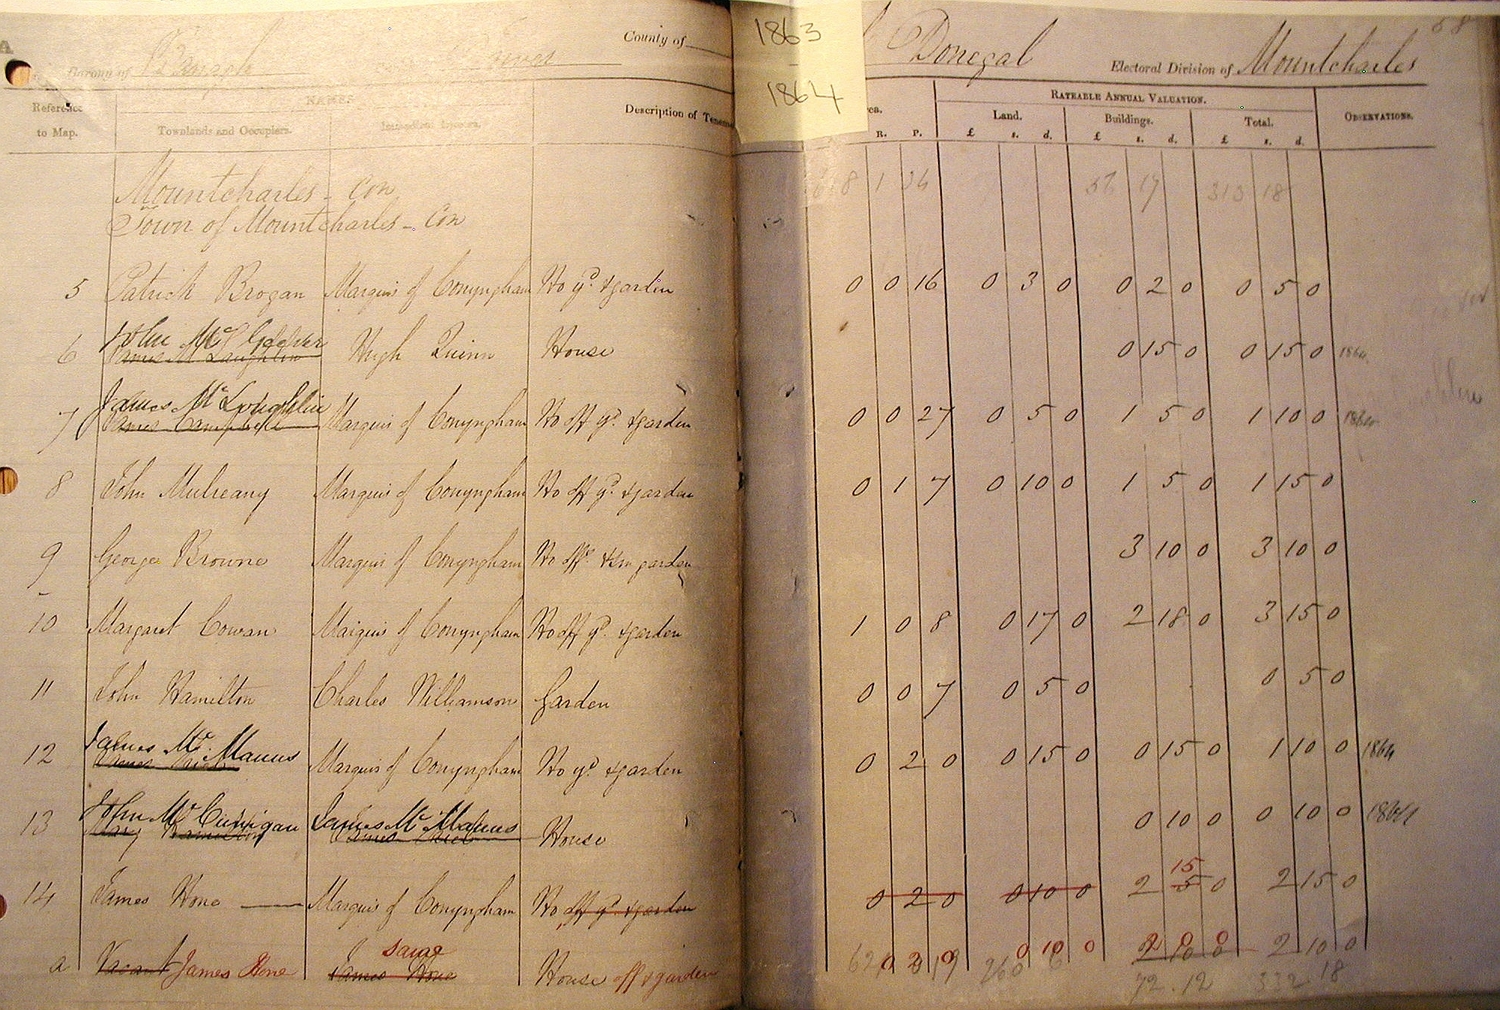 1863
1864
Barony of Banagh
County of Donegal
Electoral Division of Mountcharles
68
Reference to Map.
NAMES.
Townlands and Occupiers.
Immediate Lessors.
Description of Tenem
rea.
R. P.
RATEABLE ANNUAL VALUATION.
Land.
£ s. d.
Buildings.
£ s. d.
Total.
£ s. d.
OBSERVATIONS.
Mountcharles - Con
Town of Mountcharles - Con
5 Patrick Brogan Marquis of Conyngham Ho yd & garden 0 0 16 0 3 0 0 2 0 0 5 0
6 John Mc James McLaughlin Hugh Quinn House 0 15 0 0 15 0 1864
7 James McLoughlin James Campbell Marquis of Conyngham Ho off yd & garden 0 0 27 0 5 0 1 5 0 1 10 0 1864
8 John Mulreany Marquis of Conyngham Ho off yd & garden 0 1 7 0 10 0 1 5 0 1 15 0
9 George Browne Marquis of Conyngham Ho offs & sm garden 3 10 0 3 10 0
10 Margaret Cowan Marquis of Conyngham Ho off yd & garden 1 0 8 0 17 0 2 18 0 3 15 0
11 John Hamilton Charles Williamson Garden 0 0 7 0 5 0 0 5 0
12 James McManus James Marquis of Conyngham Ho yd & garden 0 2 0 0 15 0 0 15 0 1 10 0 1864
13 John McCunigan Mary Hamilton James McManus James House 0 10 0 0 10 0 1864
15
14 James Hone Marquis of Conyngham Ho off yd & garden 0 2 0 0 10 0 2 5 0 2 15 0
same
a Vacant James Hone James Hone House off & garden 0 2 0 0 10 0 2 0 0 2 10 0
72 . 12 332 . 18